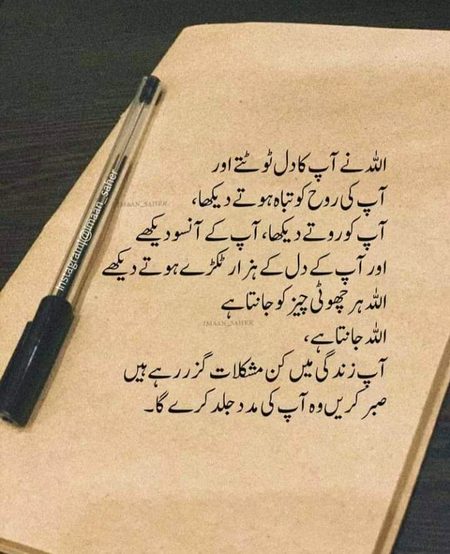 اللہ نے آپ کا دل ٹوٹتے اور
آپ کی روح کو تباہ ہوتے دیکھا،
IMAAN_SAHER
آپ کو روتے دیکھا، آپ کے آنسو دیکھے
اور آپ کے دل کے ہزار ٹکڑے ہوتے دیکھے
اللہ ہر چھوٹی چیز کو جانتا ہے
IMAAN_SAHER
اللہ جانتا ہے،
آپ زندگی میں کن مشکلات گزر رہے ہیں
صبر کریں وہ آپ کی مدد جلد کرے گا۔
Instagram|@imaan_saher